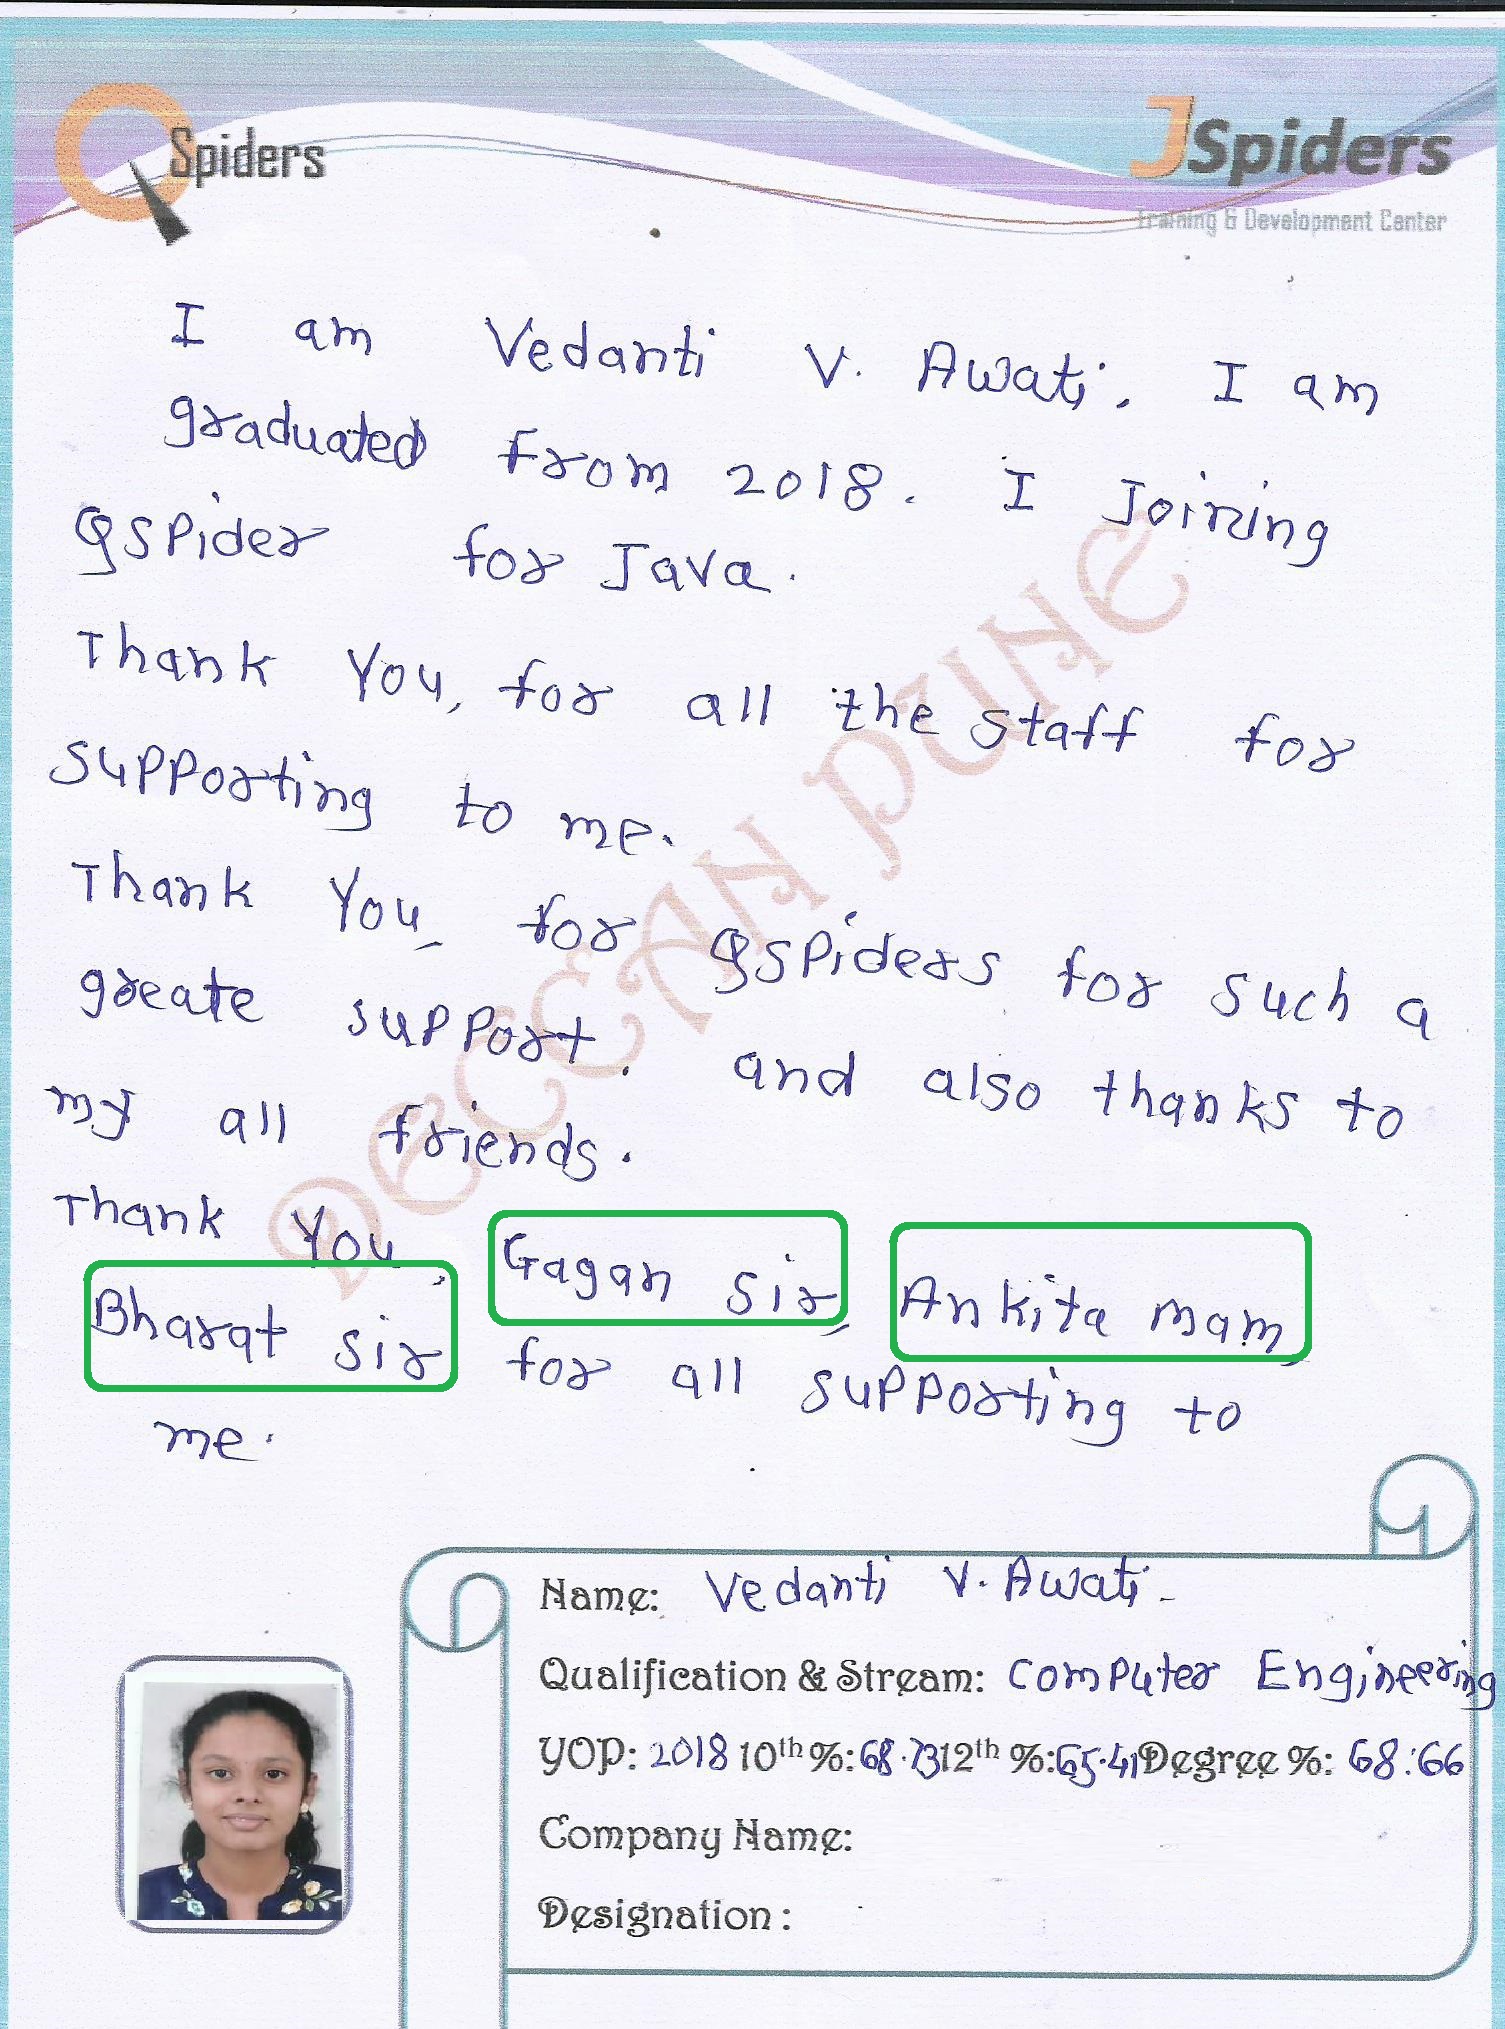 QSpiders
JSpiders
Training & Development Center
I am Vedanti V. Awati. I am
graduated from 2018. I Joining
QSPider for Java.
Thank You, for all the staff for
supporting to me.
Thank You, for QSPiders for such a
greate support. and also thanks to
my all friends.
Thank You, Gagan sir, Ankita mam,
Bharat sir for all supporting to
me.
DECCAN PUNE
Name: Vedanti V. Awati.
Qualification & Stream: Computer Engineering
YOP: 2018 10th %: 68.73 12th %: 65.41 Degree %: 68.66
Company Name:
Designation :